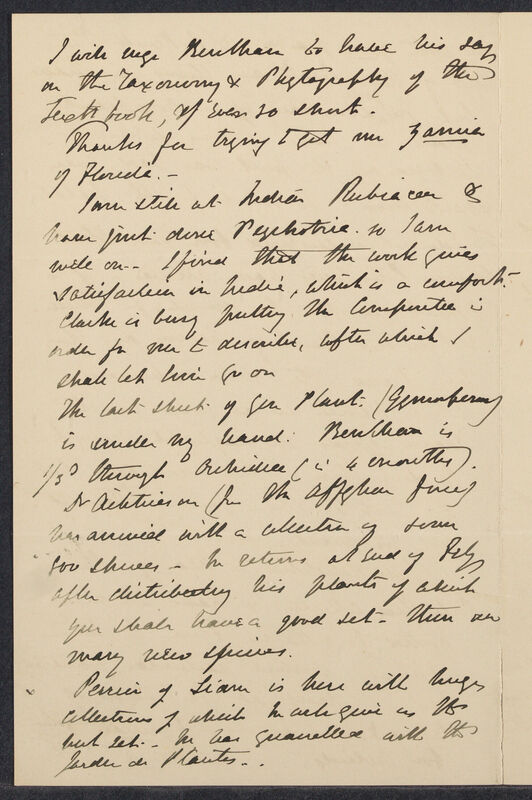 I will urge Bentham to have his say
on the Taxonomy & Phytography of the
Text book, if ever so short.
Thanks for trying to get me Zamia
of Florida. –
I am still at Indian Rubiaceae &
have just done Psychotria. so I am
well on – I find that the work gives
satisfaction in India, which is a comfort.
Clarke is busy putting the Compositae in
order for me to describe, after which I
shall let him go on
The last sheet of Gen Plant. (Gymnosperms)
is under my hand. Bentham is
1/3d through Orchideae (in 4 months).
Dr Aitchison (from the Affghan fron)
has arrived with a collection of some
800 species – he returns at end of Feby
after distributing his plants of which
you shall have a good set – there are
many new species.
of Siam is here with huge
collections of which he will give us the
best set. – He has quarrelled with the
Jardin des Plantes. –